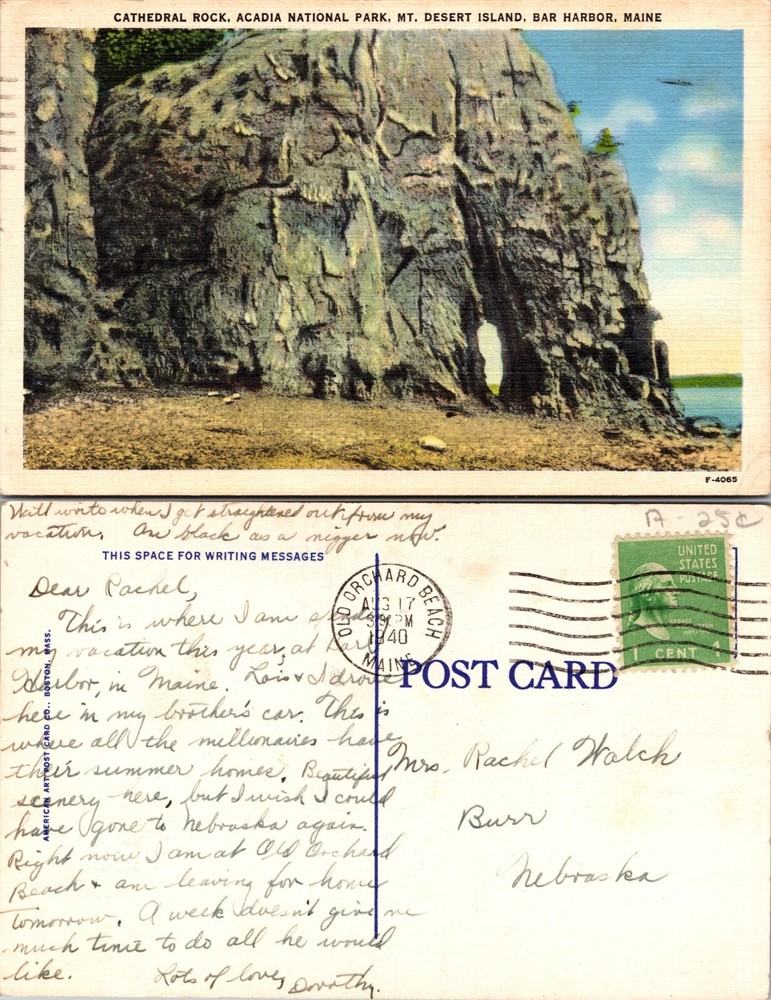 CATHEDRAL ROCK, ACADIA NATIONAL PARK, MT. DESERT ISLAND, BAR HARBOR, MAINE
F-4065
Will write when I get straightened out from my
vacation. Am black as a nigger now.
A - 25¢
THIS SPACE FOR WRITING MESSAGES
Dear Rachel,
This is where I am
my vacation this year, at Bar
Harbor, in Maine. Lois & I drove
here in my brother's car. This is
where all the millionaires have
their summer homes. Beautiful
scenery here, but I wish I could
have gone to Nebraska again.
Right now I am at Old Orchard
Beach & am leaving for home
tomorrow. A week doesn't give me
much time to do all he would
like. Lots of love, Dorothy.
AMERICAN ART POST CARD CO., BOSTON, MASS.
OLD ORCHARD BEACH
AUG 17
PM
1940
MAINE
UNITED
STATES
POSTAGE
GEORGE WASHINGTON
1 CENT 1
POST CARD
Mrs. Rachel Walch
Burr
Nebraska